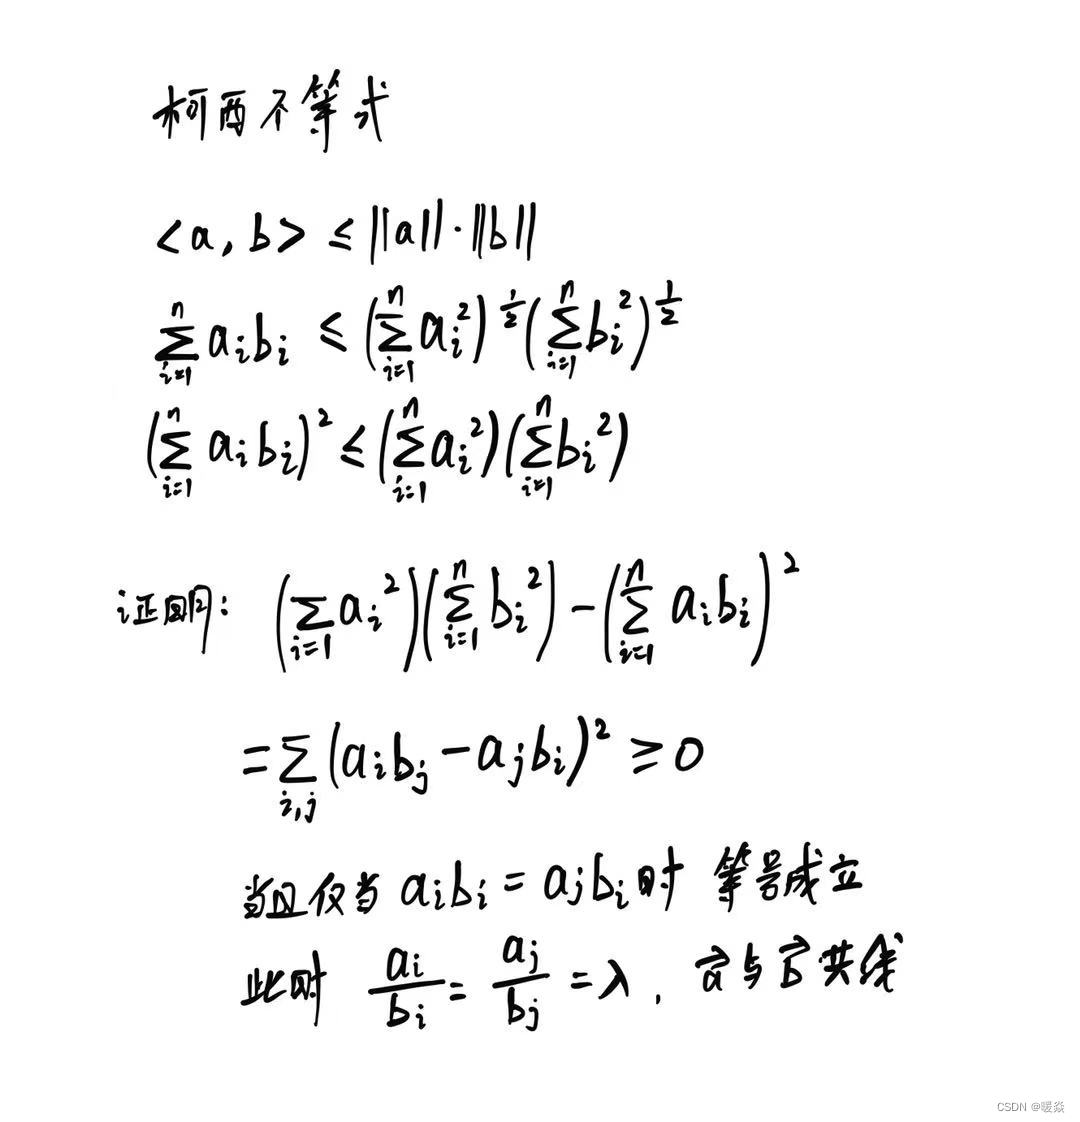 柯西不等式
<a, b> ≤ ||a||·||b||
\sum_{i=1}^{n} a_i b_i ≤ (\sum_{i=1}^{n} a_i^2)^{\frac{1}{2}} (\sum_{i=1}^{n} b_i^2)^{\frac{1}{2}}
(\sum_{i=1}^{n} a_i b_i)^2 ≤ (\sum_{i=1}^{n} a_i^2)(\sum_{i=1}^{n} b_i^2)
证明: (\sum_{i=1} a_i^2)(\sum_{i=1}^{n} b_i^2) - (\sum_{i=1}^{n} a_i b_i)^2
= \sum_{i,j} (a_i b_j - a_j b_i)^2 ≥ 0
当且仅当 a_i b_i = a_j b_i 时 等号成立
此时 \frac{a_i}{b_i} = \frac{a_j}{b_j} = λ, \vec{a} 与 \vec{b} 共线
CSDN @暖焱